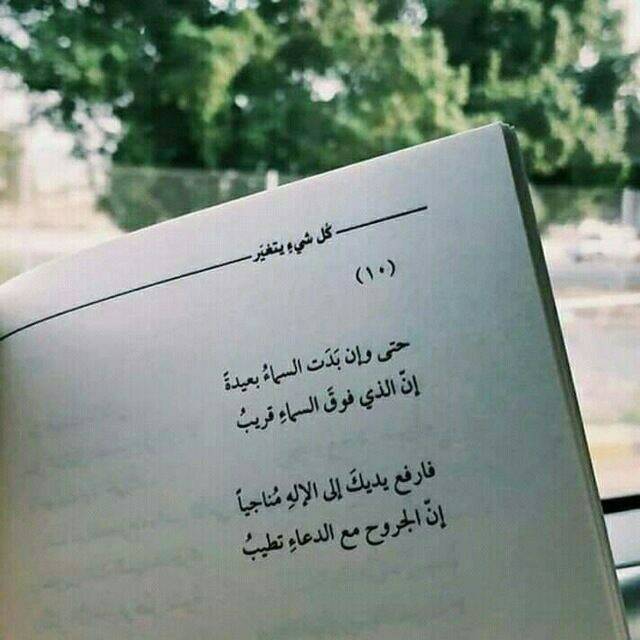 كُل شيءٍ يتغيّر
(١٠)
حتى وإن بَدَت السماءُ بعيدةً
إنّ الذي فوقَ السماءِ قريبُ
فارفع يديكَ إلى الإلهِ مُناجياً
إنّ الجروح مع الدعاءِ تطيبُ